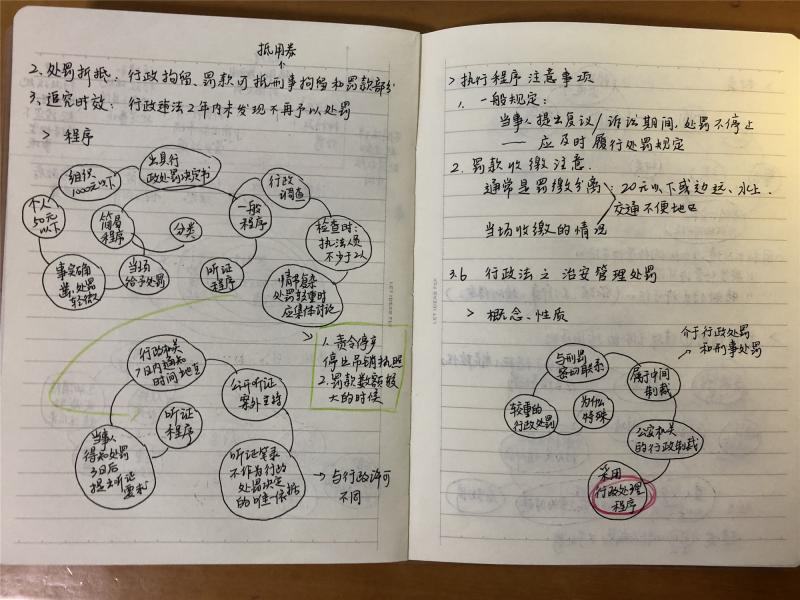 抵用券
2. 处罚折抵：行政拘留、罚款可抵刑事拘留和罚款部分
3. 追究时效：行政违法2年内未发现不再予以处罚
> 程序
组织
1000元以下
出具行
政处罚决定书
个人
50元
以下
简易
程序
分类
一般
程序
行政
调查
检查时：
执法人员
不少于2人
事实确
凿、处罚
较轻
当场
给予处罚
听证
程序
情节复杂
处罚较重时
应集体讨论
> 1. 责令停产
停业吊销执照
2. 罚款数额较
大的时候
行政机关
7日内通知
时间地点
公开听证
案外主持
听证
程序
当事人
得知处罚
3日后
提出听证
要求
听证笔录
不作为行政
处罚决定
的唯一依据
→ 与行政许可
不同
> 执行程序注意事项
1. 一般规定：
当事人提出复议/诉讼期间，处罚不停止
—— 应及时履行处罚规定
2. 罚款收缴注意.
通常是罚缴分离
：20元以下或边远、水上、
交通不便地区
当场收缴的情况
3.6 行政法之治安管理处罚
> 概念、性质
介于行政处罚
和刑事处罚
与刑罚
密切联系
属于中间
制裁
较重的
行政处罚
为什么
特殊
公安机关
的行政制裁
采用
行政处理
程序
LET IDEAS FLY
LET IDEAS FLY